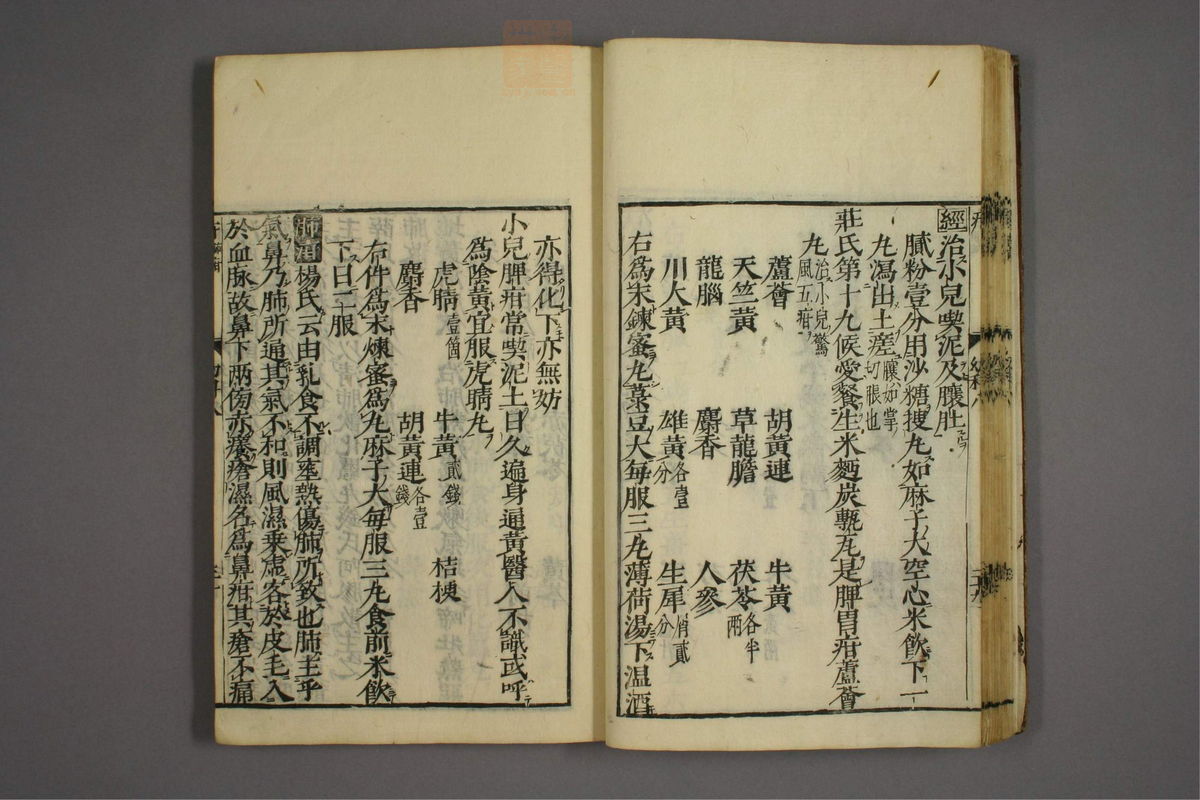 經治小兒喫泥及膁肚
膩粉壹分用沙糖搜丸如麻子大空心米飲下一
丸瀉出土瘥
莊氏第十九候愛餐生米麪炭甎瓦是脾胃疳蘆薈
丸治小兒驚風五疳
蘆薈 胡黃連 牛黃
天竺黃 草龍膽 茯苓各半兩
龍腦 麝香 人參
川大黃 雄黃各壹分 生犀屑貳分
右為末鍊蜜丸菉豆大每服三丸薄荷湯下温酒
亦得化下亦無妨
小兒脾疳常喫泥土日久遍身通黃醫人不識或呼
為陰黃宜服虎睛丸
虎睛壹箇 牛黃貳錢 桔梗
麝香 胡黃連各壹錢
右件為末煉蜜為丸麻子大每服三丸食前米飲
下日二服
肺疳楊氏云由乳食不調壅熱傷肺所致也肺主乎
氣鼻乃肺所通其氣不和則風濕乗虛客於皮毛入
於血脉故鼻下兩傍赤癢瘡濕名為鼻疳其瘡不痛